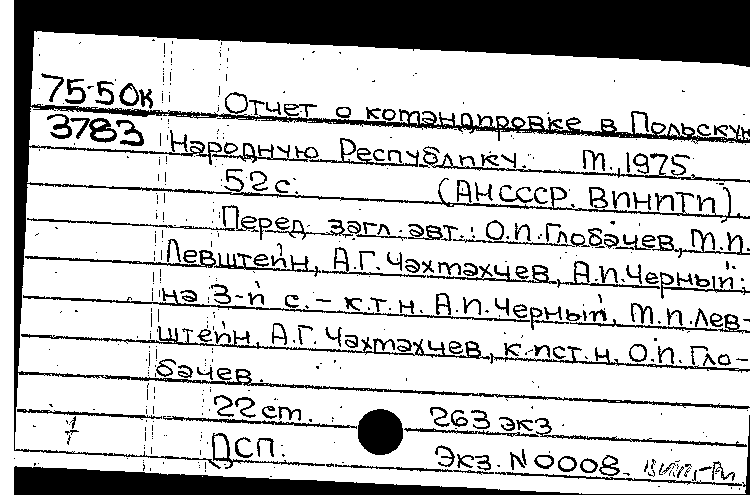 75-50к Отчет о командировке в Польскую
3783 Народную Республику. М., 1975.
52 с. (АН СССР. ВИНИТИ).
Перед загл. авт.: О.П. Глобачев, М.П.
Левштейн, А.Г. Чахмахчев, А.П. Черный;
на 3-й с. – к.т.н. А.П. Черный, М.П. Лев-
штейн, А.Г. Чахмахчев, к.ист.н. О.П. Гло-
бачев.
22 cm. 263 экз.
ДСП. Экз. N 0008.